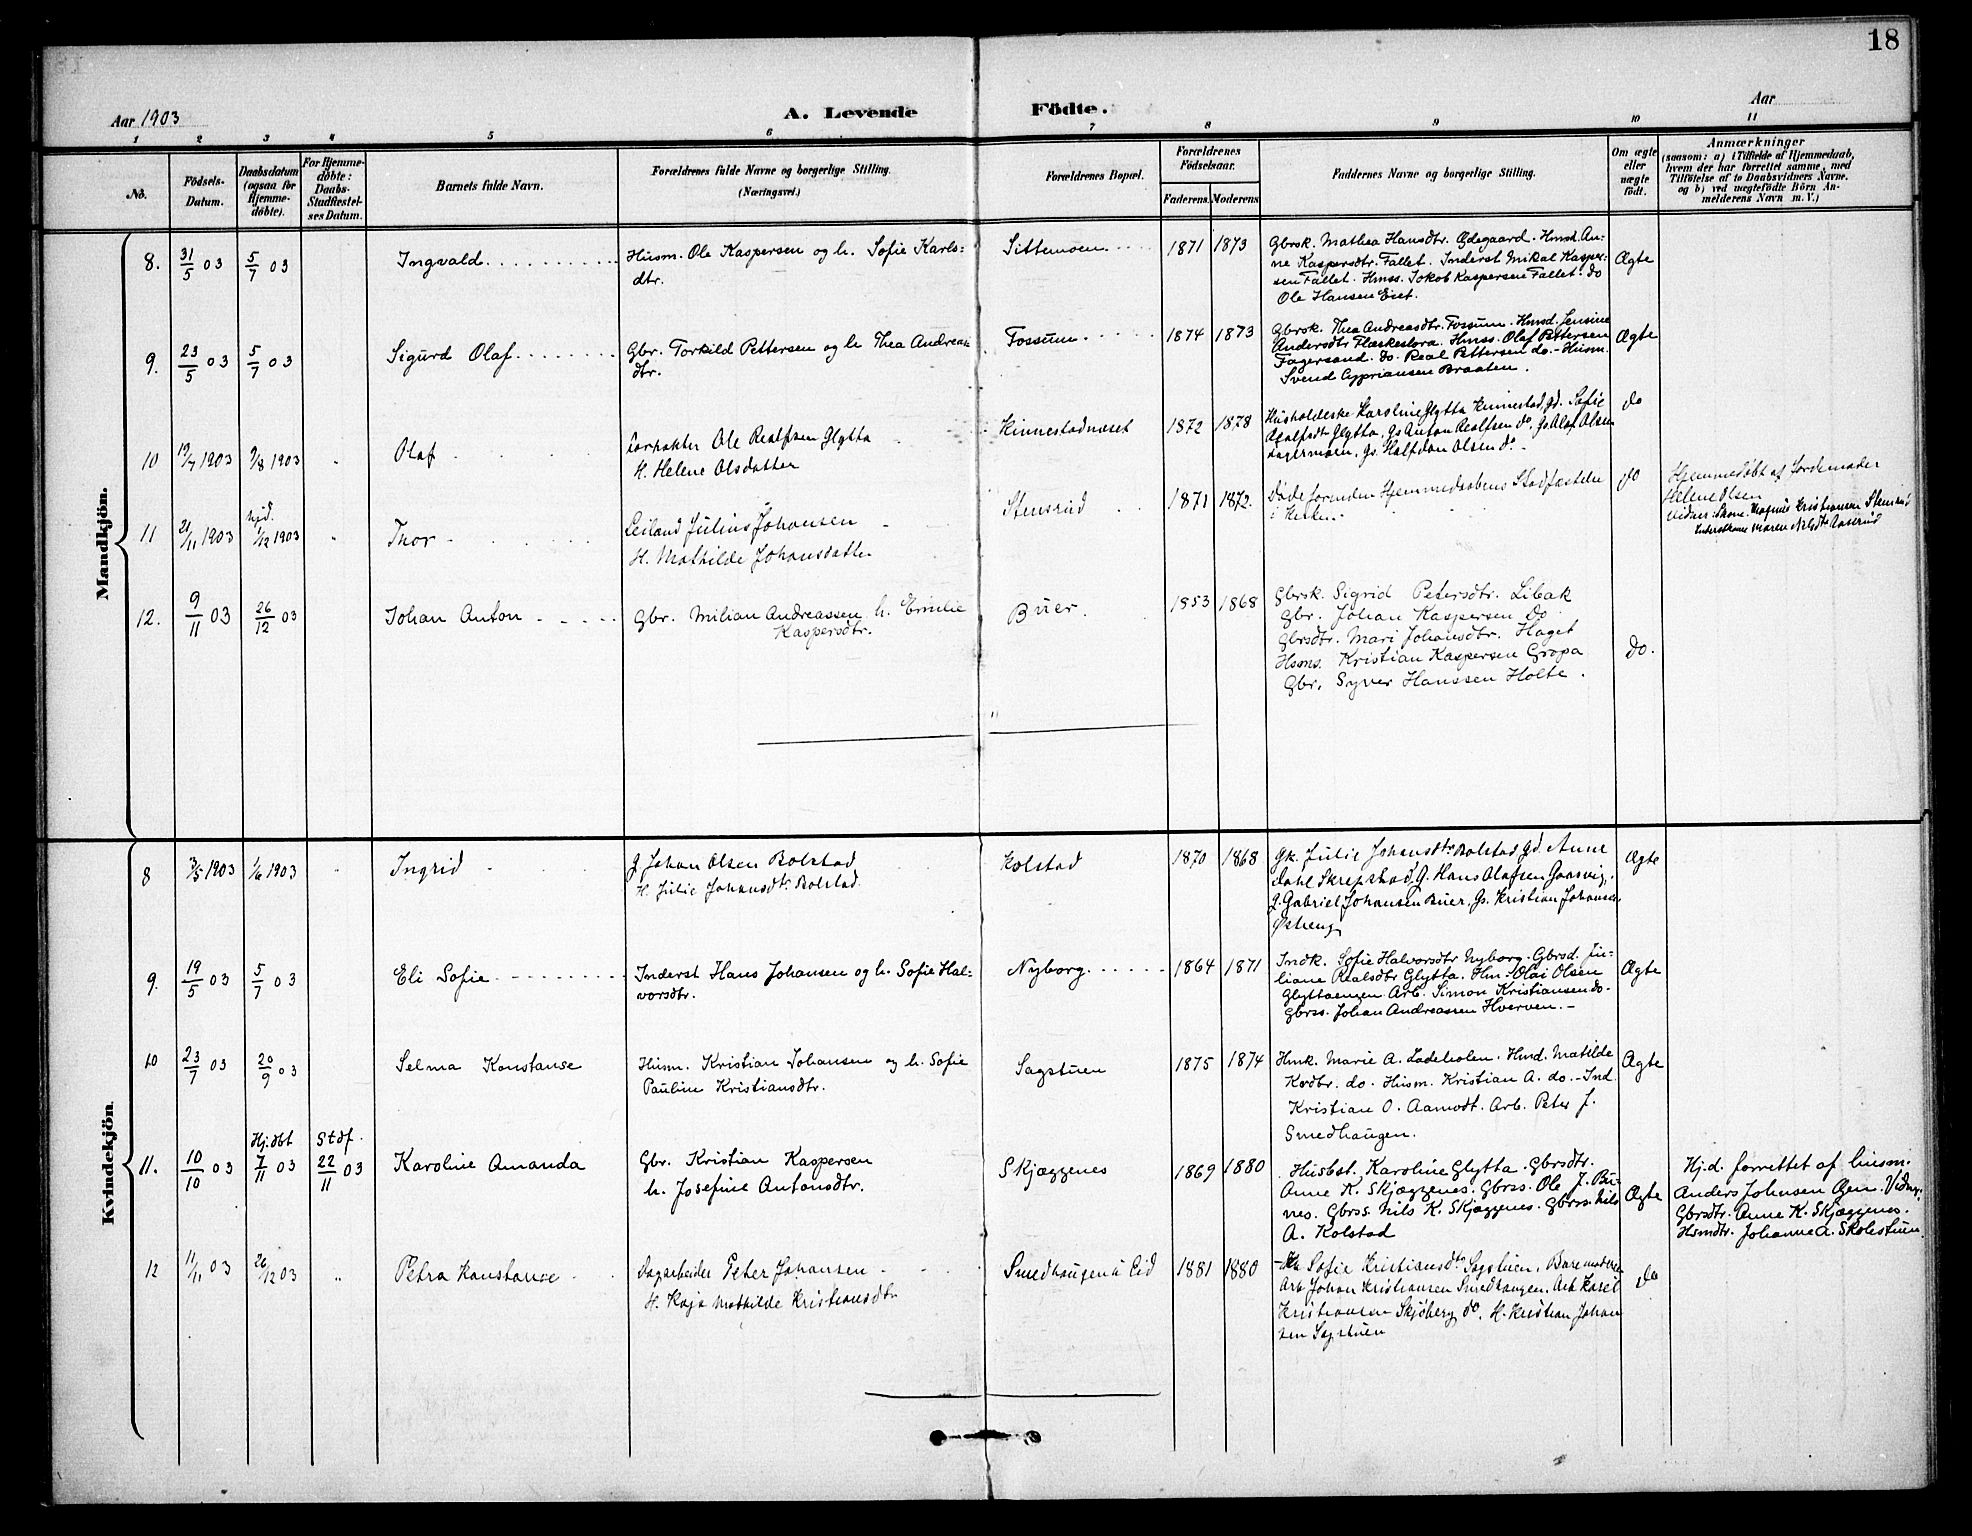 18
Aar 1903
A. Levende Födte.
Aar
1 2 3 4 5 6 7 8 9 10 11
No.
Födsels-Datum.
Daabsdatum (ogsaa for Hjemmedöbte).
For Hjemmedöbte: Daabs-Stadfæstelses Datum.
Barnets fulde Navn.
Forældrenes fulde Navne og borgerlige Stilling.
(Næringsvei.)
Forældrenes Bopæl.
Forældrenes Födselsaar.
Faderens. Moderens
Faddernes Navne og borgerlige Stilling.
Om ægte eller uægte födt.
Anmærkninger
(saasom: a) i Tilfælde af Hjemmedaab,
hvem der har forrettet samme, med
Tilföielse af to Daabsvidners Navne.
og b) ved uægtefödte Börn An-
melderens Navn m. V.)
Mandkjön.
8. 31/5 03 5/7 03 Ingvald
Husm. Ole Kaspersen og h. Sofie Karls=
dtr.
Sittemoen 1871 1873
Gbrsk. Mathea Hansdtr. Ødegaard. Hmsd. An-
ne Kaspersdtr. Fallet. Inderst Mikal Kasper-
sen Fallet. Hmss. Jokob Kaspersen Fallet. do
Ole Hansen Eiet.
Ægte
9. 23/5 03 5/7 03 Sigurd Olaf
Gbr. Torkild Pettersen og h Thea Andreas
dtr.
Fossum 1874 1873
Gbrsk. Thea Andreasdtr. Fossum. Hmsd. Jensine
Andersdtr Flæskestora. Hmss. Olaf Pettersen
Fagersand. do. Real Pettersen do. - Husm.
Svend Cyprianssen Braaten.
Ægte
10 19/7 1903 9/8 1903 " Olaf
Forpakter Ole Realfsen Glytta
H. Helene Olsdatter
Kinnestadnæset 1872 1878
Husholderske Karoline Glytta Kinnestad, gd. Sofie
Realfsdtr Glytta, Gs Anton Realfsen do, Gs Olaf Olsen
Lagermoen, Gs. Halfdan Olsen do.
do
11 21/11 1903 hjd. 1/12 1903 " Thor
Leiland Julius Johansen
H. Mathilde Johansdatter
Stensrud 1871 1872.
Døde forinden Hjemmedaabens Stadfæstelse
i Kirken.
do
Hjemmedøbt af Jordemoder
Helene Olsen
Vidner: Skom. Magnus Kristiansen Stensrud
12. 9/11 03 26/12 03 Johan Anton
Gbr. Milian Andreassen h. Emilie
Kaspersdtr.
Buer. 1853 1868
Gbrsk. Sigrid Petersdtr. Libak
Gbr. Johan Kaspersen do
Gbrsdtr. Mari Johansdtr. Haget
Hsms. Kristian Kaspersen Gropa
Gbr. Syver Hanssen Holte.
do.
Kvindekjön.
8 3/5 1903 1/6 1903 " Ingrid
G Johan Olsen Bolstad
H. Julie Johansdtr Bolstad.
Kolstad 1870 1868
Gk. Julie Johansdtr Bolstad Gd. Anne
Dahl Skrepstad, G. Hans Olafsen Gaasvig,
G. Gabriel Johansen Buer, Gs. Kristian Johansen
Østeng
Ægte
9. 19/5 03 5/7 03 Eli Sofie
Inderst Hans Johansen og h. Sofie Hal=
vorsdtr.
Nyborg. 1864 1871
Indk. Sofie Halvorsdtr Nyborg. Gbrsd. Ju-
liane Realsdtr Glytta. Hm. Olai Olsen
Glyttaengen. Arb. Simon Kristiansen do.
Gbrss. Johan Andreassen Hverven. -
Ægte
10 23/7 03 20/9 03 Selma Konstanse
Husm. Kristian Johansen og h. Sofie
Pauline Kristiansdtr.
Sagstuen 1875 1874
Hmk. Marie A. Ladeholen. Hmd. Matilde
Kordbr. do. Husm. Kristian A. do. - Ind.
Kristian O. Aamodt. Arb. Peter J.
Smedhaugen.
Ægte
11. 10/10 03 Hj.døbt 7/11 03 Stdf. 22/11 03 Karoline Amanda
Gbr. Kristian Kaspersen
h. Josefine Antonsdtr.
Skjæggenes 1869 1880
Husbst. Karoline Glytta. Gbrsdtr.
Anne K. Skjæggenes. Gbrss. Ole J. Bu-
nes. Gbrss. Nils K. Skjæggenes. Gbrss. Nils
A. Kolstad
Ægte
Hj.d. forrettet af husm.
Anders Johnsen Øen. Vidner:
Gbrsdtr. Anne K. Skjæggenes.
Hsmdtr. Johanne A. Skolestuen
12 11/11 03 26/12 03 " Petra Konstanse
Dagarbeider Peter Johansen
H. Kaja Mathilde Kristiansdtr
Smedhaugen u Eid 1881 1880
Sofie Kristiansdtr Sagstuen, Barnemoderen
Arb Johan Kristiansen Smedhaugen, Arb Karel
Kristiansen Skjöberg do, H. Kristian Johan
sen Sagstuen
do